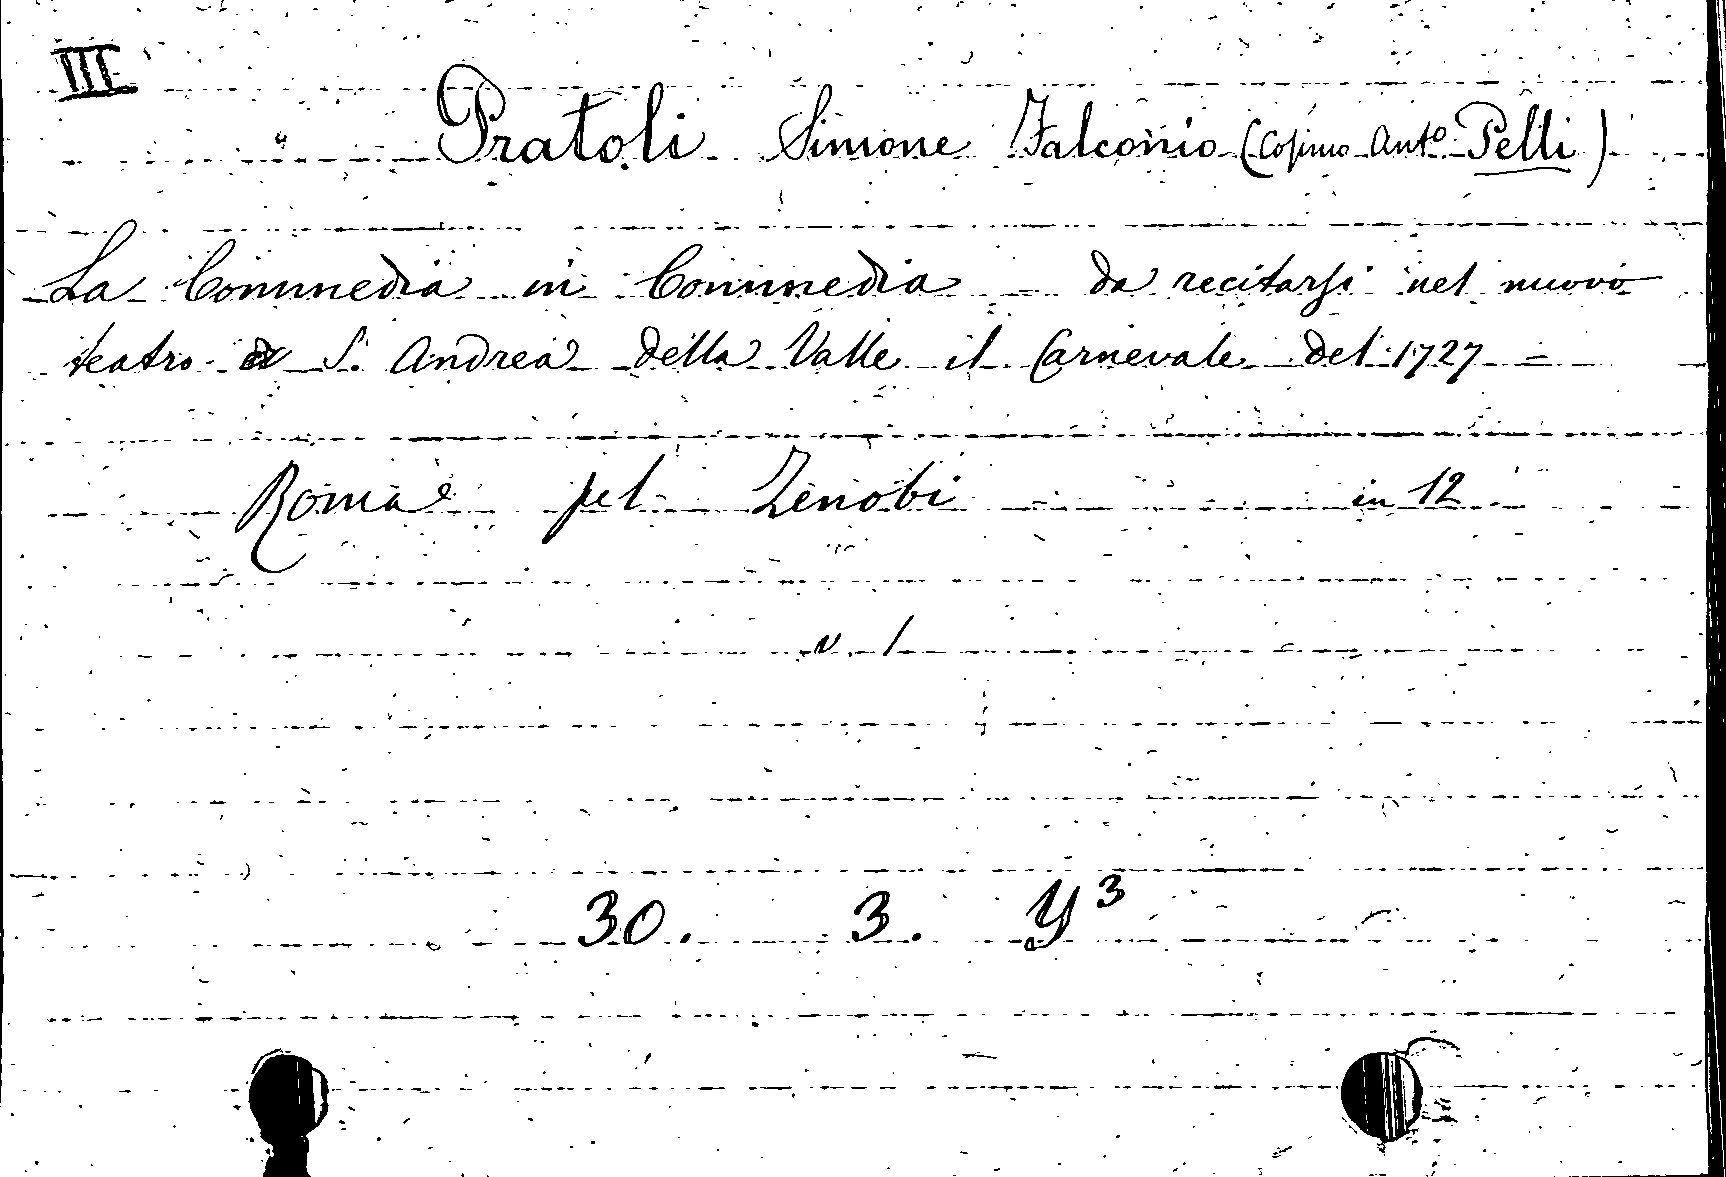 III
Pratoli Simone Falconio (Cosimo Ant.º Pelli)
La Commedia in Commedia - da recitarsi nel nuovo
teatro di S. Andrea della Valle il Carnevale del 1727 =
Roma pel Zenobi in 12
v. 1
30. 3. Y 3